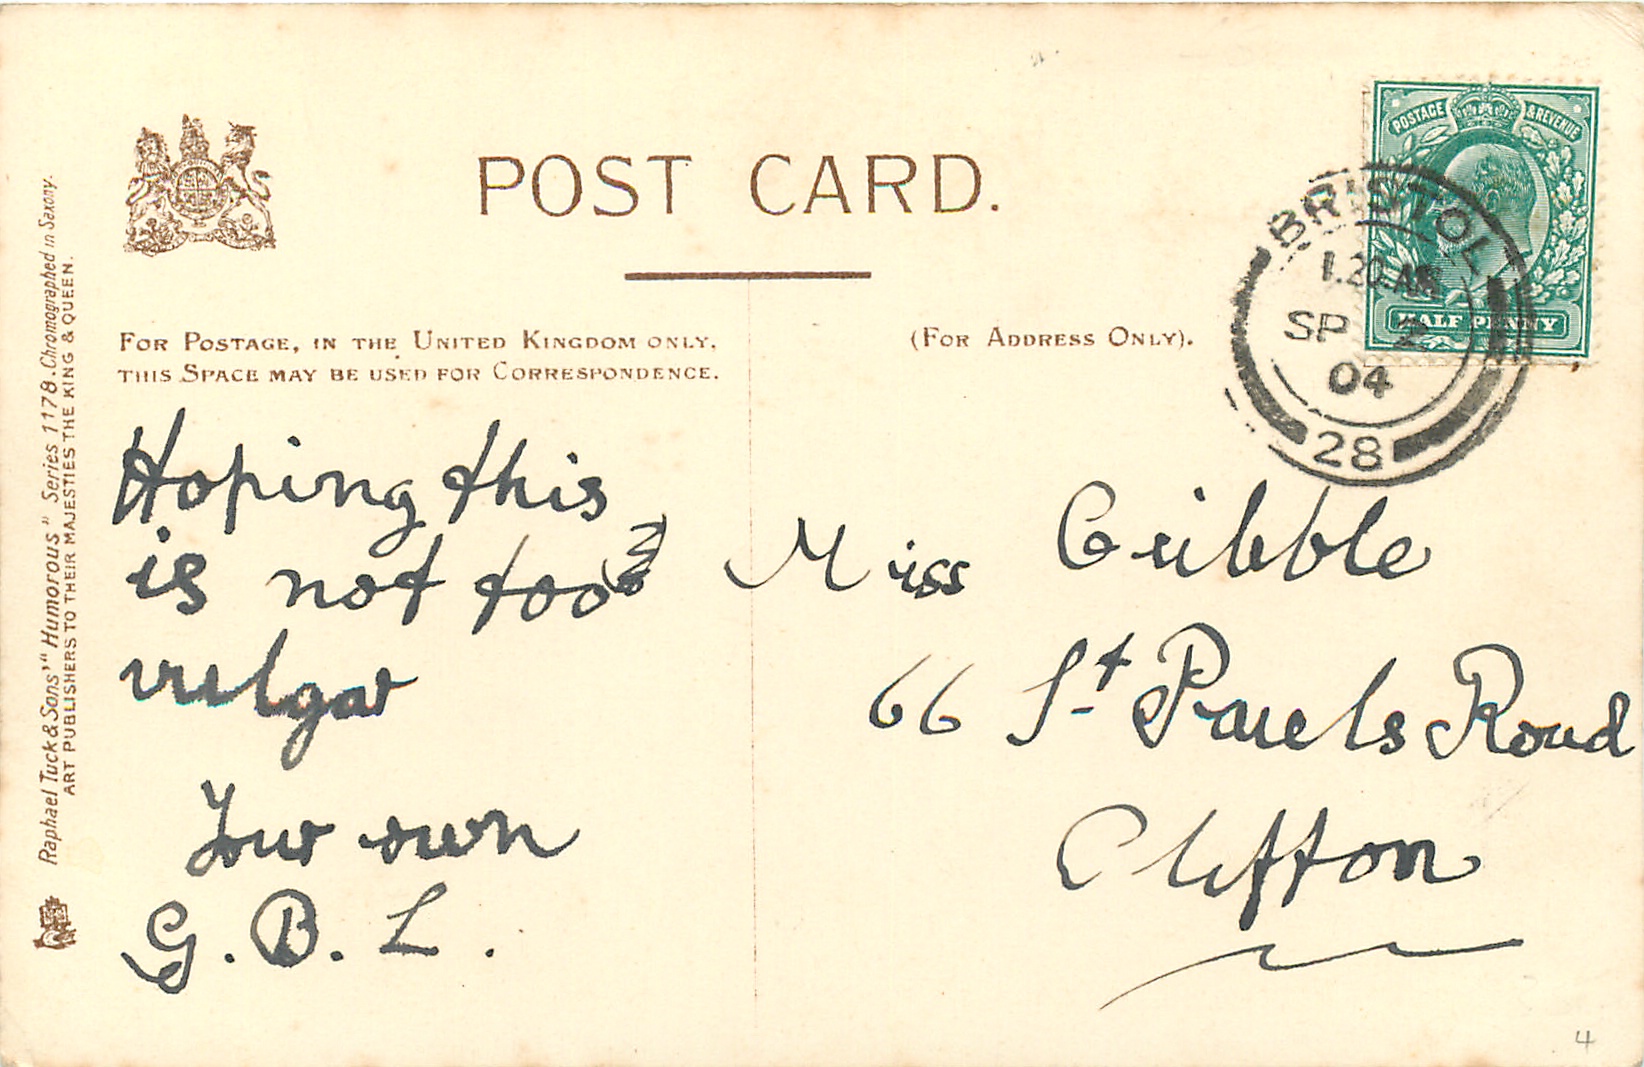 POST CARD.
FOR POSTAGE, IN THE UNITED KINGDOM ONLY,
THIS SPACE MAY BE USED FOR CORRESPONDENCE.
(FOR ADDRESS ONLY).
Raphael Tuck & Sons' "Humorous" Series 1178. Chromographed in Saxony.
ART PUBLISHERS TO THEIR MAJESTIES THE KING & QUEEN.
POSTAGE & REVENUE
HALF PENNY
BRISTOL
1.20.AM
SP 2
04
28
Hoping this
is not too
vulgar
Your own
G. B. L.
Miss Gribble
66 St Pauls Road
Clifton
4